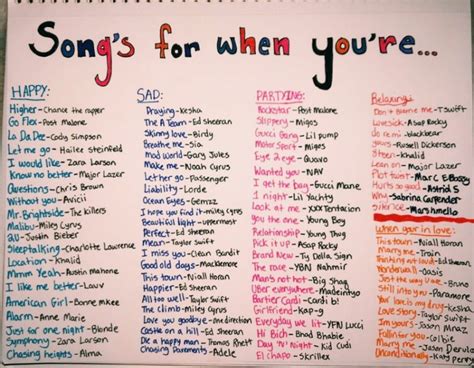 Song's for when you're...
HAPPY:
Higher-Chance the rapper
Go Flex-Post Malone
La Da Dee-Cody Simpson
Let me go-Hailee Steinfeld
I would like-Zara Larson
Know no better-Major Lazer
Questions-Chris Brown
Without you-Avicii
Mr. Brightside-The killers
Malibu-Miley Cyrus
2U-Justin Bieber
Sleeptalking-Charlotte Lawrence
Location-Khalid
Mmm Yeah-Austin Mahone
I like me better-Lauv
American Girl-Bonne Mkee
Alarm-Anne Marie
Just for one night-Blonde
Symphony-Zara Larson
Chasing heights-Alma
SAD:
Praying-Kesha
The A Team-Ed Sheeran
Skinny love-Birdy
Breathe me-Sia
Mad World-Gary Jules
Make me-Noah Cyrus
Let her go-Passenger
Liability-Lorde
Ocean Eyes-
Hope you find it-Miley Cyrus
Beautiful light-
Perfect-Ed Sheeran
Mean-Taylor Swift
I miss you-Clean Bandit
Good old days-Macklemore
This town-Niall Horan
Happier-Ed Sheeran
All too well-Taylor Swift
The climb-Miley Cyrus
Castle on a hill-Ed Sheeran
Dear no one-
Chasing Pavements-Adele
PARTYING:
Rockstar-Post Malone
Slippery-Migos
Gucci Gang-Lil pump
Motor Sport-Migos
Eye 2 eye-Quavo
Wanted you-NAV
I get the bag-Gucci Mane
1 night-Lil Yachty
Look at me-XXXTentacion
you the one-Young Boy
Relationship-Young Thug
Pick it up-Asap Rocky
Brand New-Ty Dolla Sign
The race-YBN Nahmir
Man's not hot-Big Shaq
Uber everywhere-Madeintyo
Bartier Cardi-Cardi b!
Girlfriend-Kap-g
Everyday we lit-YFN Lucci
Hi Bich-Bhad Bhabie
Day 'N' Night-Kid Cudi
El Chapo-Skrillex
Relaxing:
Don't Blame me-T.Swift
Lovesick-Asap Rocky
do re mi-blackbear
yours-Russell Dickerson
8teen-Khalid
Lean on-Major Lazer
Plot twist-Marc E Bassy
Hurts so good-Astrid S
Why-Sabrina Carpenter
Silence-Marshmello
When your in love:
This town-Niall Horan
Marry me-Train
Thinking out loud-Ed Sheeran
Wonderwall-Oasis
until the day-Bruno
Still into you-Paramore
Your love is my drug-Kesha
Love story-Taylor Swift
Im yours-Jason Mraz
Fallin for you-Colbie
Marry me-Jason Derulo
Unconditionally-Katy perry